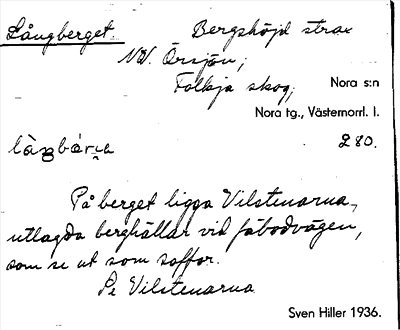 Långberget. Bergshöjd strax
NV. Örsjön,
Falksja skog, Nora s:n
Nora tg., Västernorrl. l.
280.
På berget ligga Vilstenarna,
utlagda berghällar vid fäbodvägen,
som se ut som soffor.
Se Vilstenarna
Sven Hiller 1936.